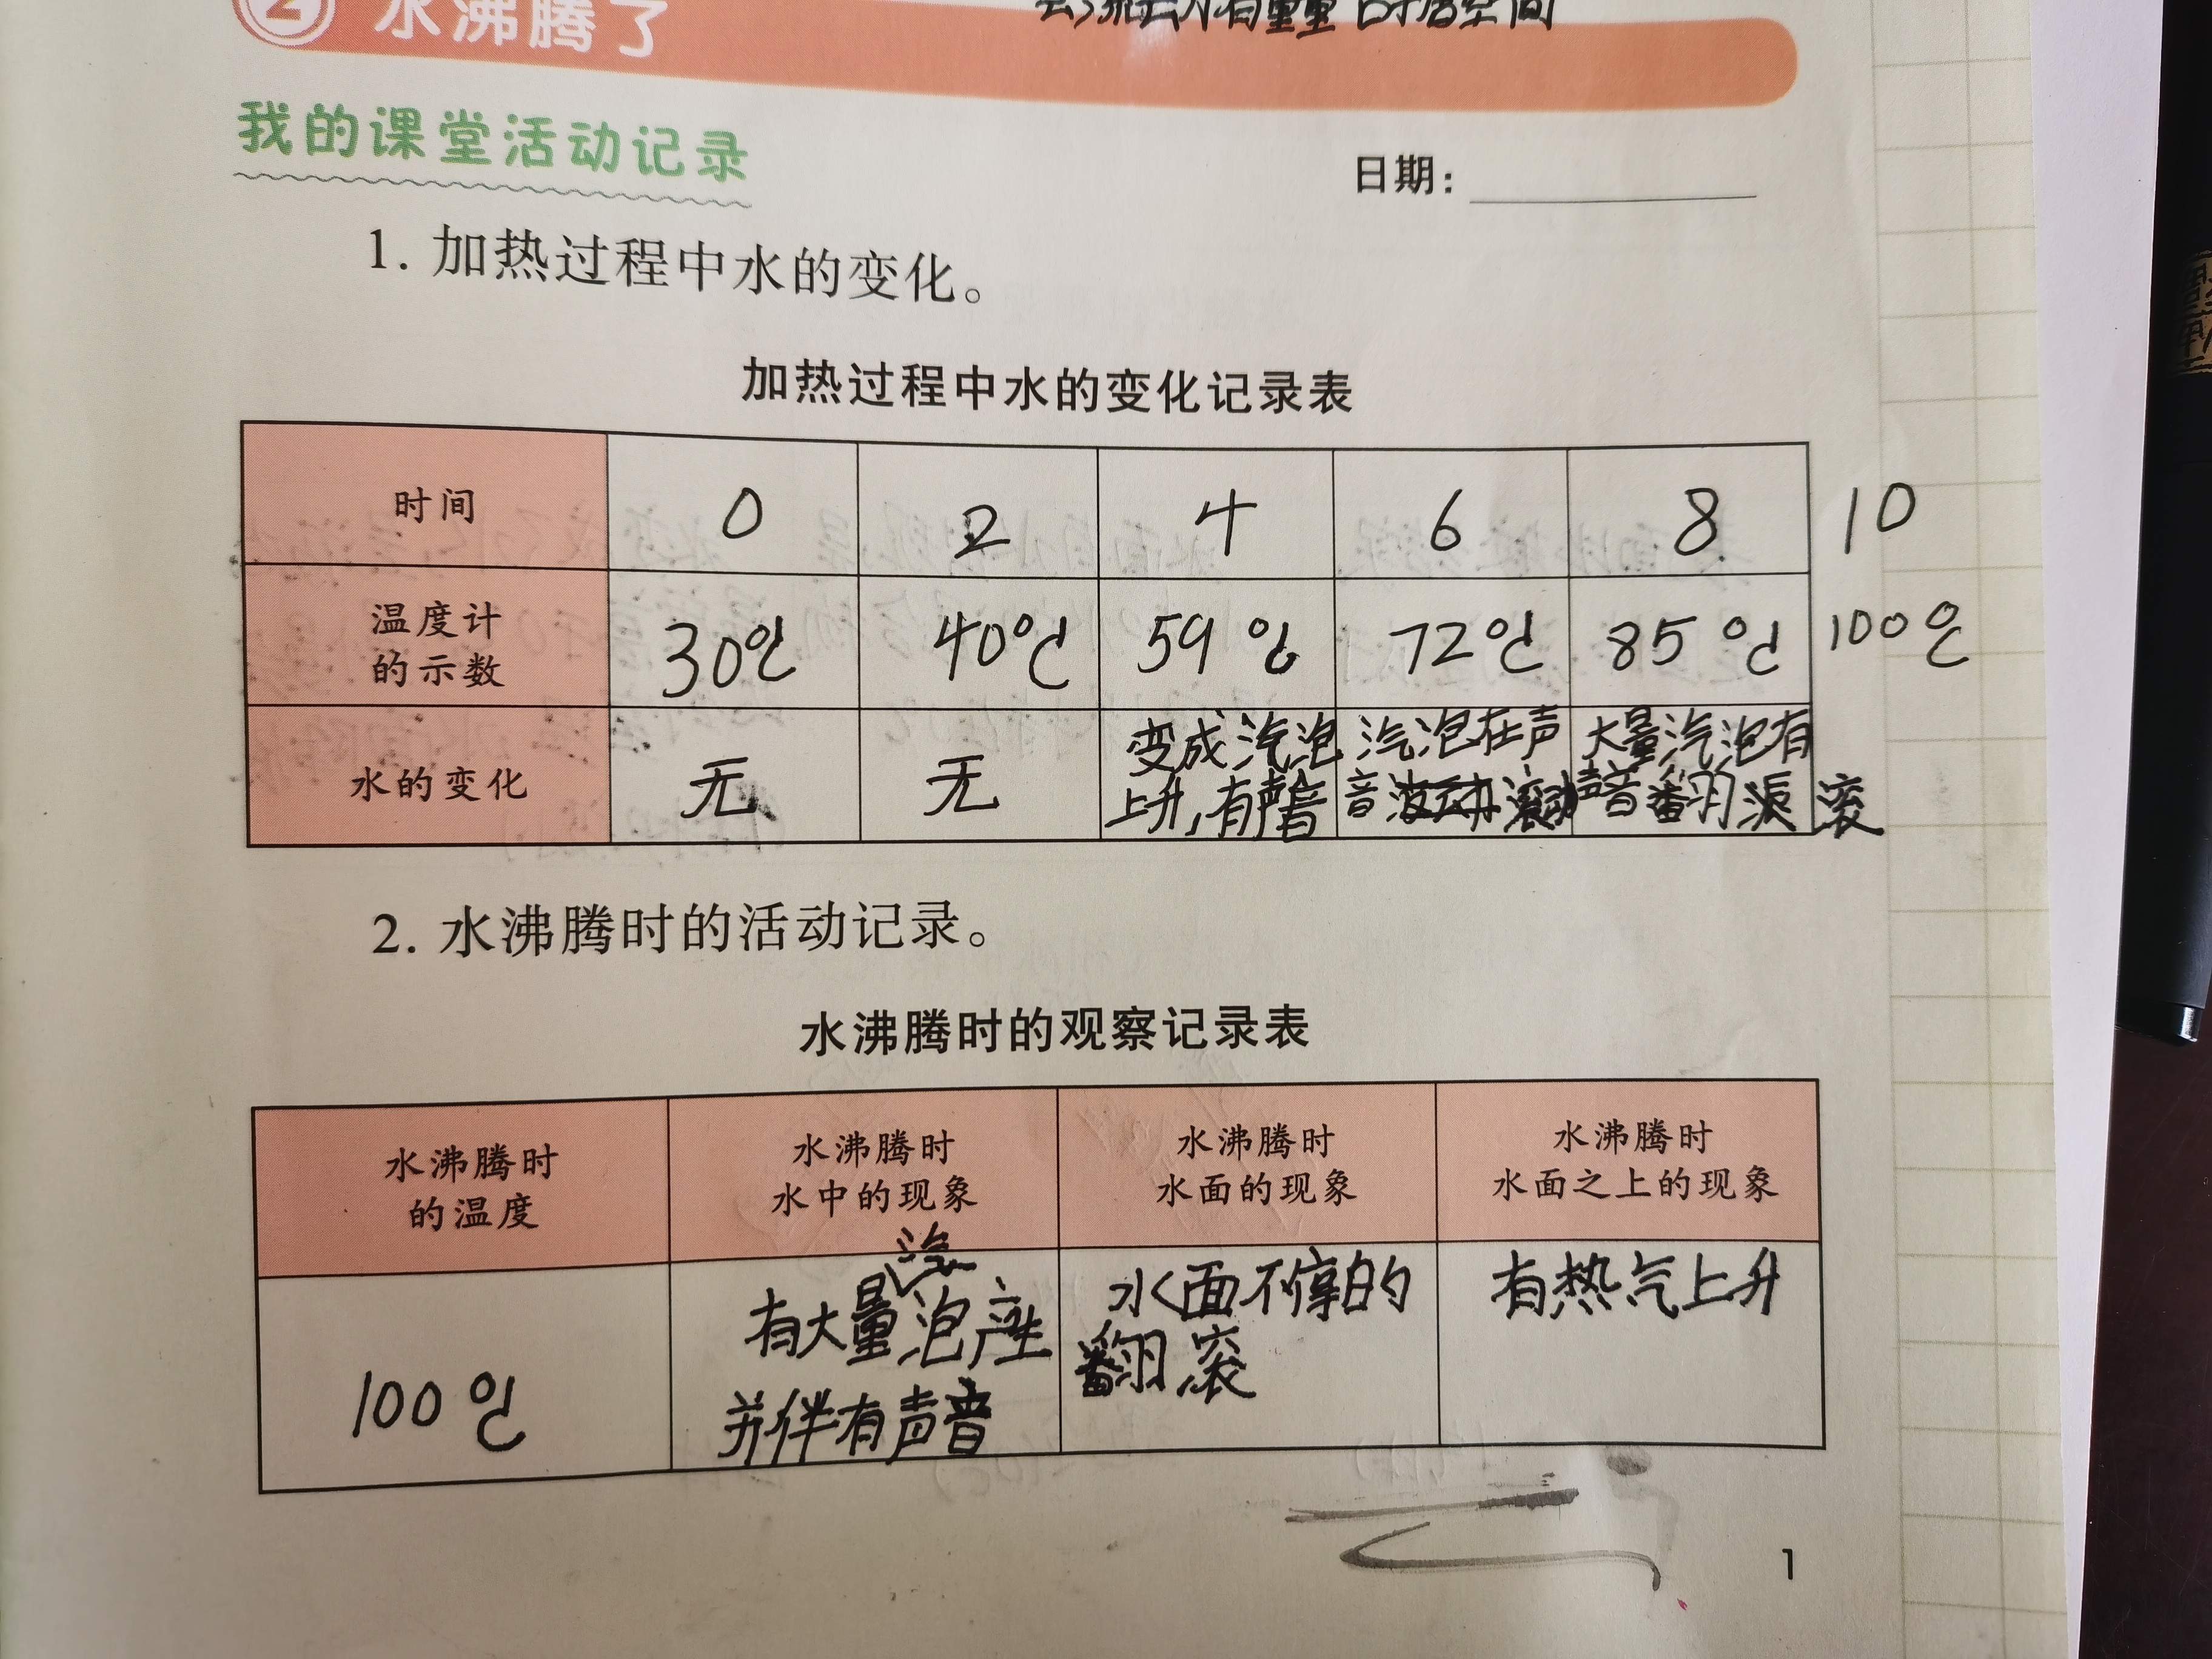 2 水沸腾了
我的课堂活动记录
日期：
1. 加热过程中水的变化。
加热过程中水的变化记录表
时间 0 2 4 6 8 10
温度计
的示数 30℃ 40℃ 59℃ 72℃ 85℃ 100℃
水的变化 无 无
变成汽泡
上升,有声音
汽泡在声
音波动滚动
大量汽泡有
声音翻滚 滚
2. 水沸腾时的活动记录。
水沸腾时的观察记录表
水沸腾时
的温度
水沸腾时
水中的现象
水沸腾时
水面的现象
水沸腾时
水面之上的现象
100℃
汽
有大量泡产生
并伴有声音
水面不停的
翻滚
有热气上升
1